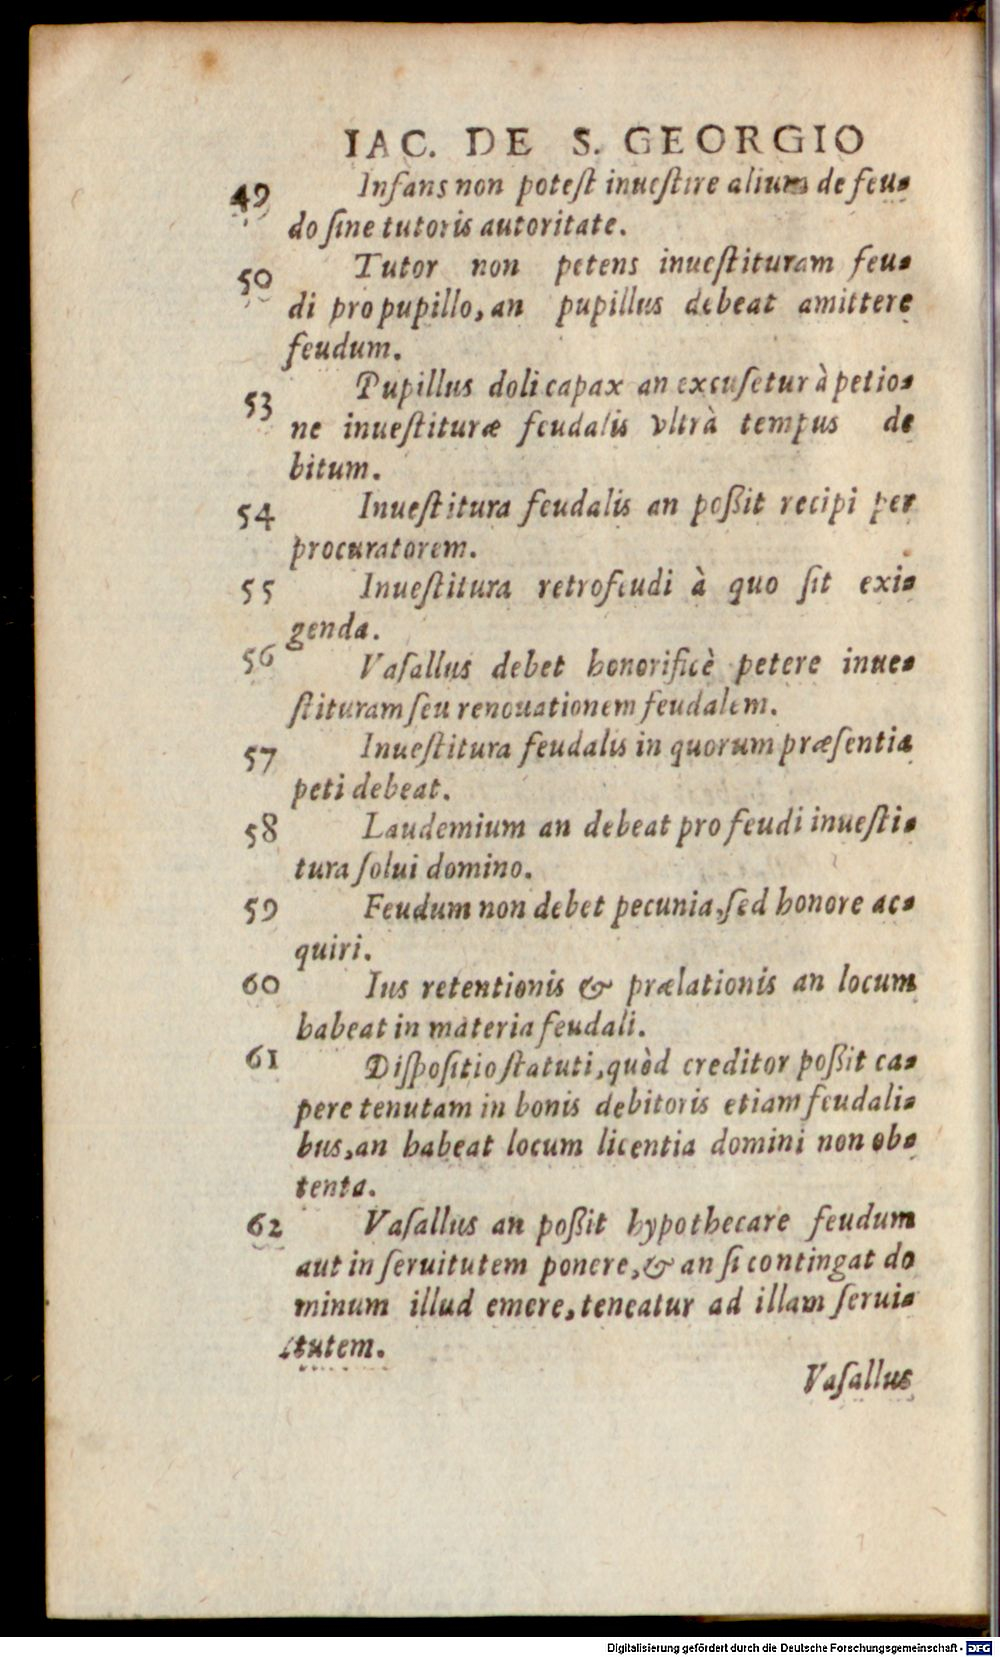 IAC. DE S. GEORGIO
49 Infans non poteſt inueſtire alium de feu-
do ſine tutoris autoritate.
50 Tutor non petens inueſtituram feu-
di pro pupillo, an pupillus debeat amittere
feudum.
53 Pupillus doli capax an excuſetur à petio-
ne inueſtituræ feudalis vltrà tempus de
bitum.
54 Inueſtitura feudalis an poßit recipi per
procuratorem.
55 Inueſtitura retrofeudi à quo ſit exi-
genda.
56 Vaſallus debet honorificè petere inue-
ſtituram ſeu renouationem feudalem.
57 Inueſtitura feudalis in quorum præſentia
peti debeat.
58 Laudemium an debeat pro feudi inueſti-
tura ſolui domino.
59 Feudum non debet pecunia, ſed honore ac-
quiri.
60 Ius retentionis & prælationis an locum
habeat in materia feudali.
61 Diſpoſitio ſtatuti, quòd creditor poßit ca-
pere tenutam in bonis debitoris etiam feudali-
bus, an habeat locum licentia domini non ob-
tenta.
62 Vaſallus an poßit hypothecare feudum
aut in ſeruitutem ponere, & an ſi contingat do
minum illud emere, teneatur ad illam ſerui-
tutem.
Vaſallus
Digitalisierung gefördert durch die Deutsche Forschungsgemeinschaft - DFG